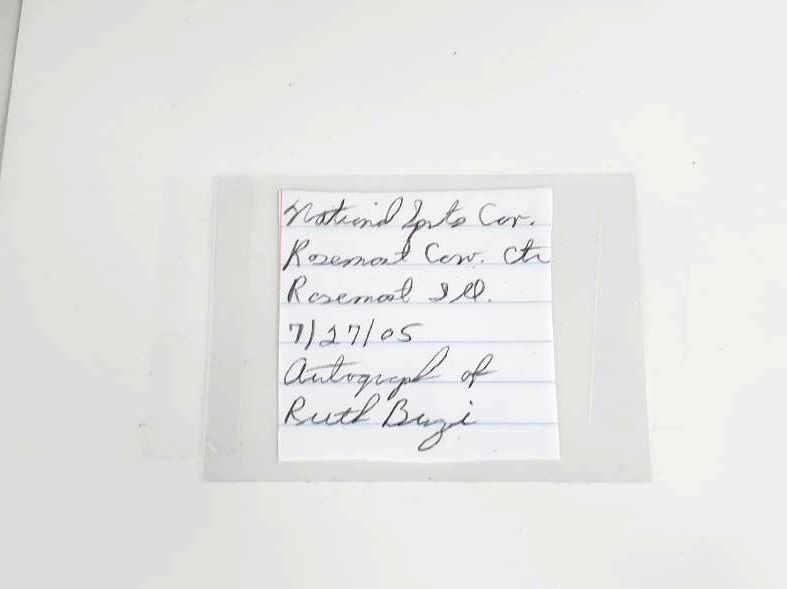 National Sports Con.
Rosemont Conv. Ctr
Rosemont Ill.
7/27/05
Autograph of
Ruth Buzi